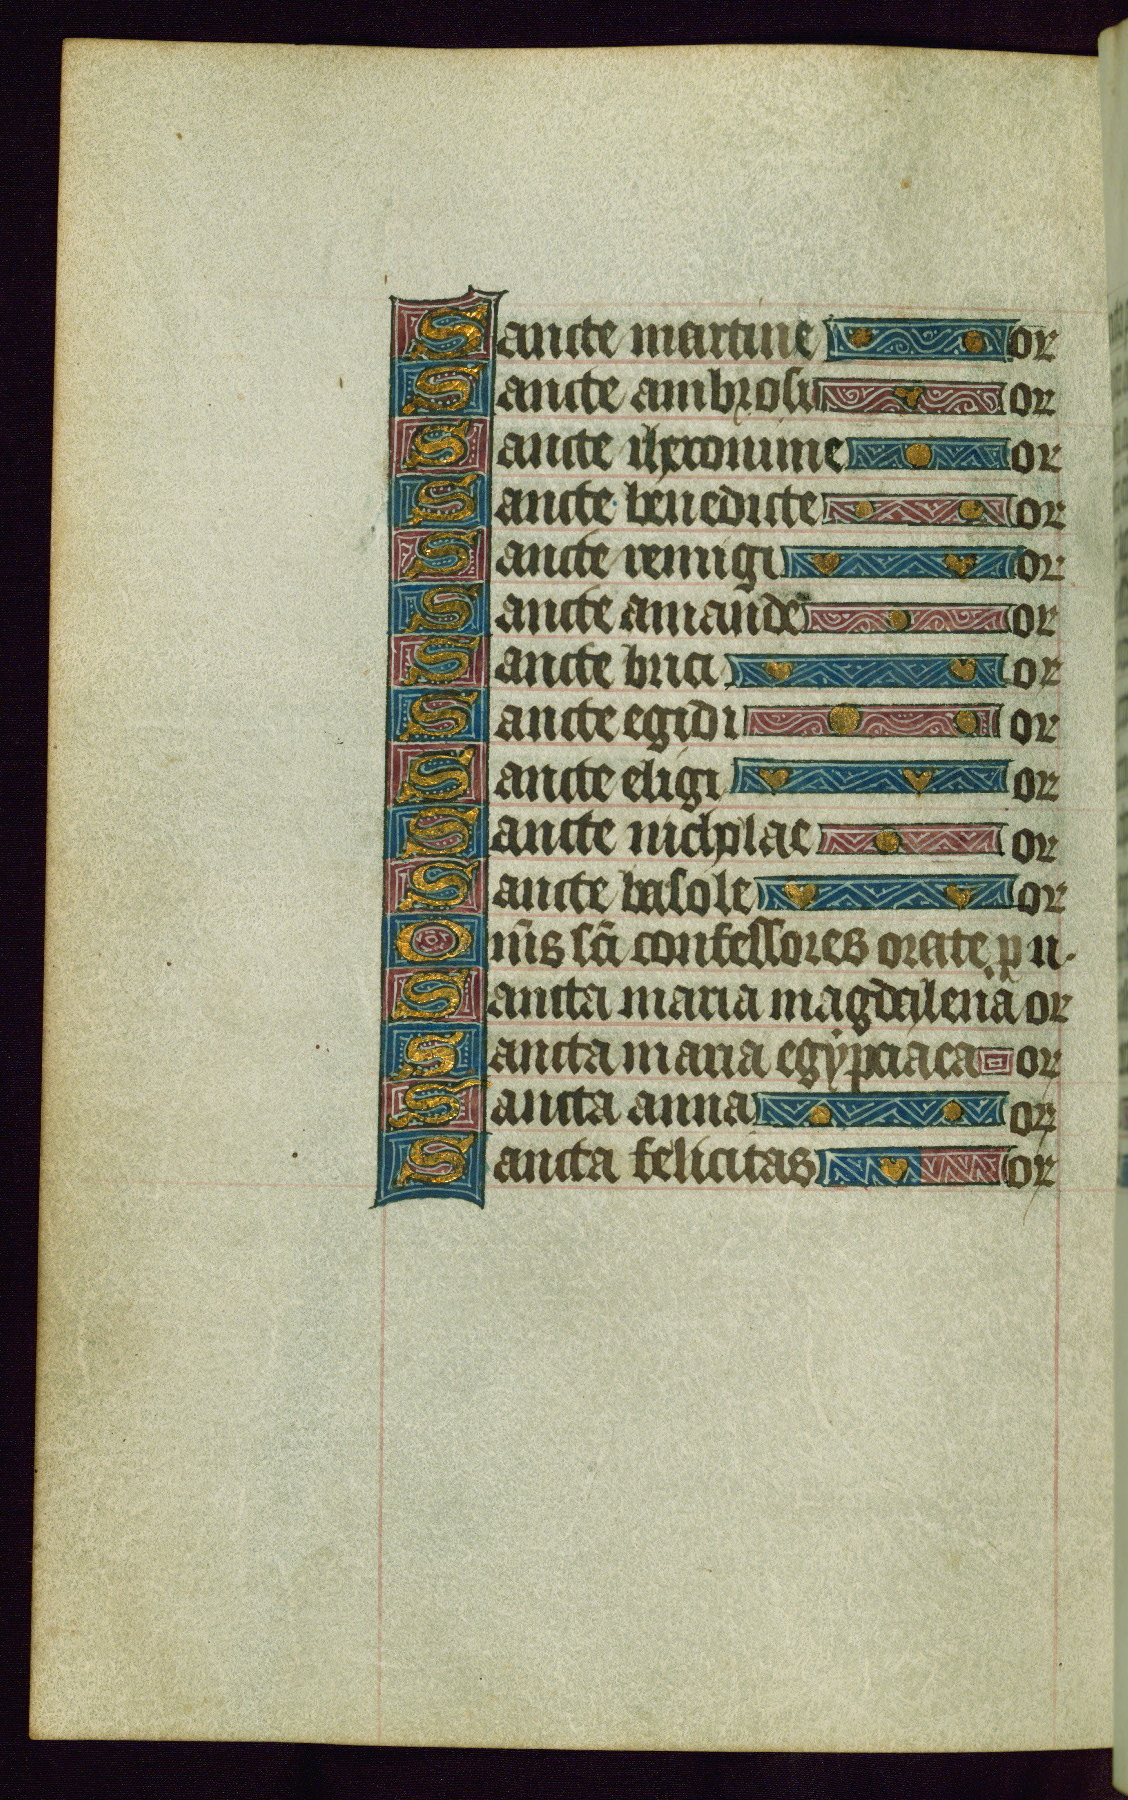 Sancte martine or
Sancte ambrosi or
Sancte iheronime or
Sancte benedicte or
Sancte remigi or
Sancte amande or
Sancte brici or
Sancte egidi or
Sancte eligi or
Sancte nicholae or
Sancte basole or
Om̄s sc̄i confessores orate p n.
Sancta maria magdalena or
Sancta maria egypciaca or
Sancta anna or
Sancta felicitas or